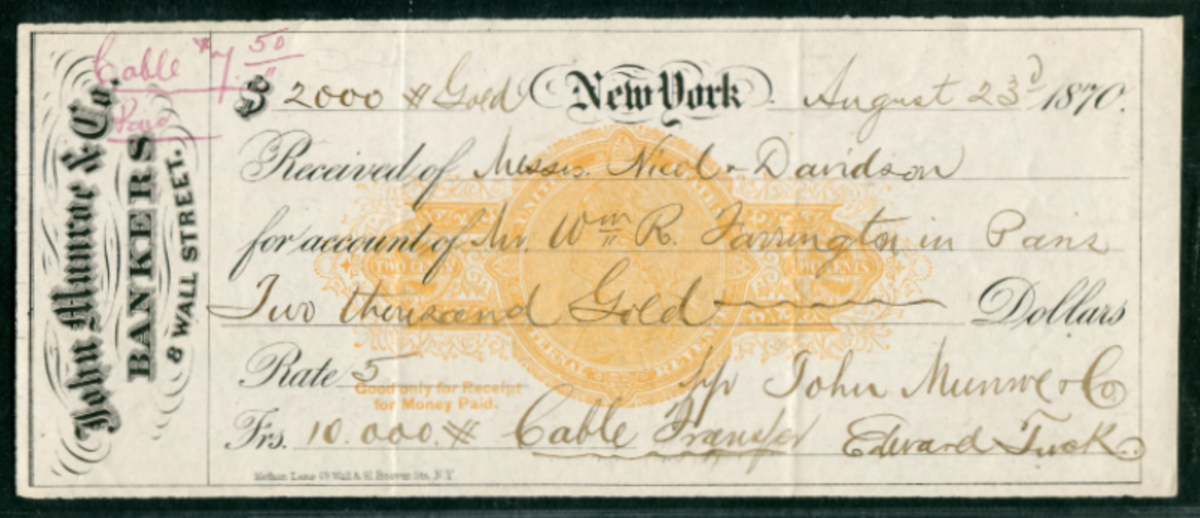 John Munroe & Co.
BANKERS
8 WALL STREET.
Cable $7.50
Paid
$ 2000 # Gold New York. August 23d 1870.
Received of Messrs. Nicol & Davidson
for account of Mr. Wm R. Farrington in Paris
Two thousand Gold Dollars
Rate 5
Good only for Receipt
for Money Paid.
pp John Munroe & Co
Frs. 10.000.# Cable Transfer Edward Tuck.
UNITED STATES
TWO CENTS
TWO CENTS
INTERNAL REVENUE